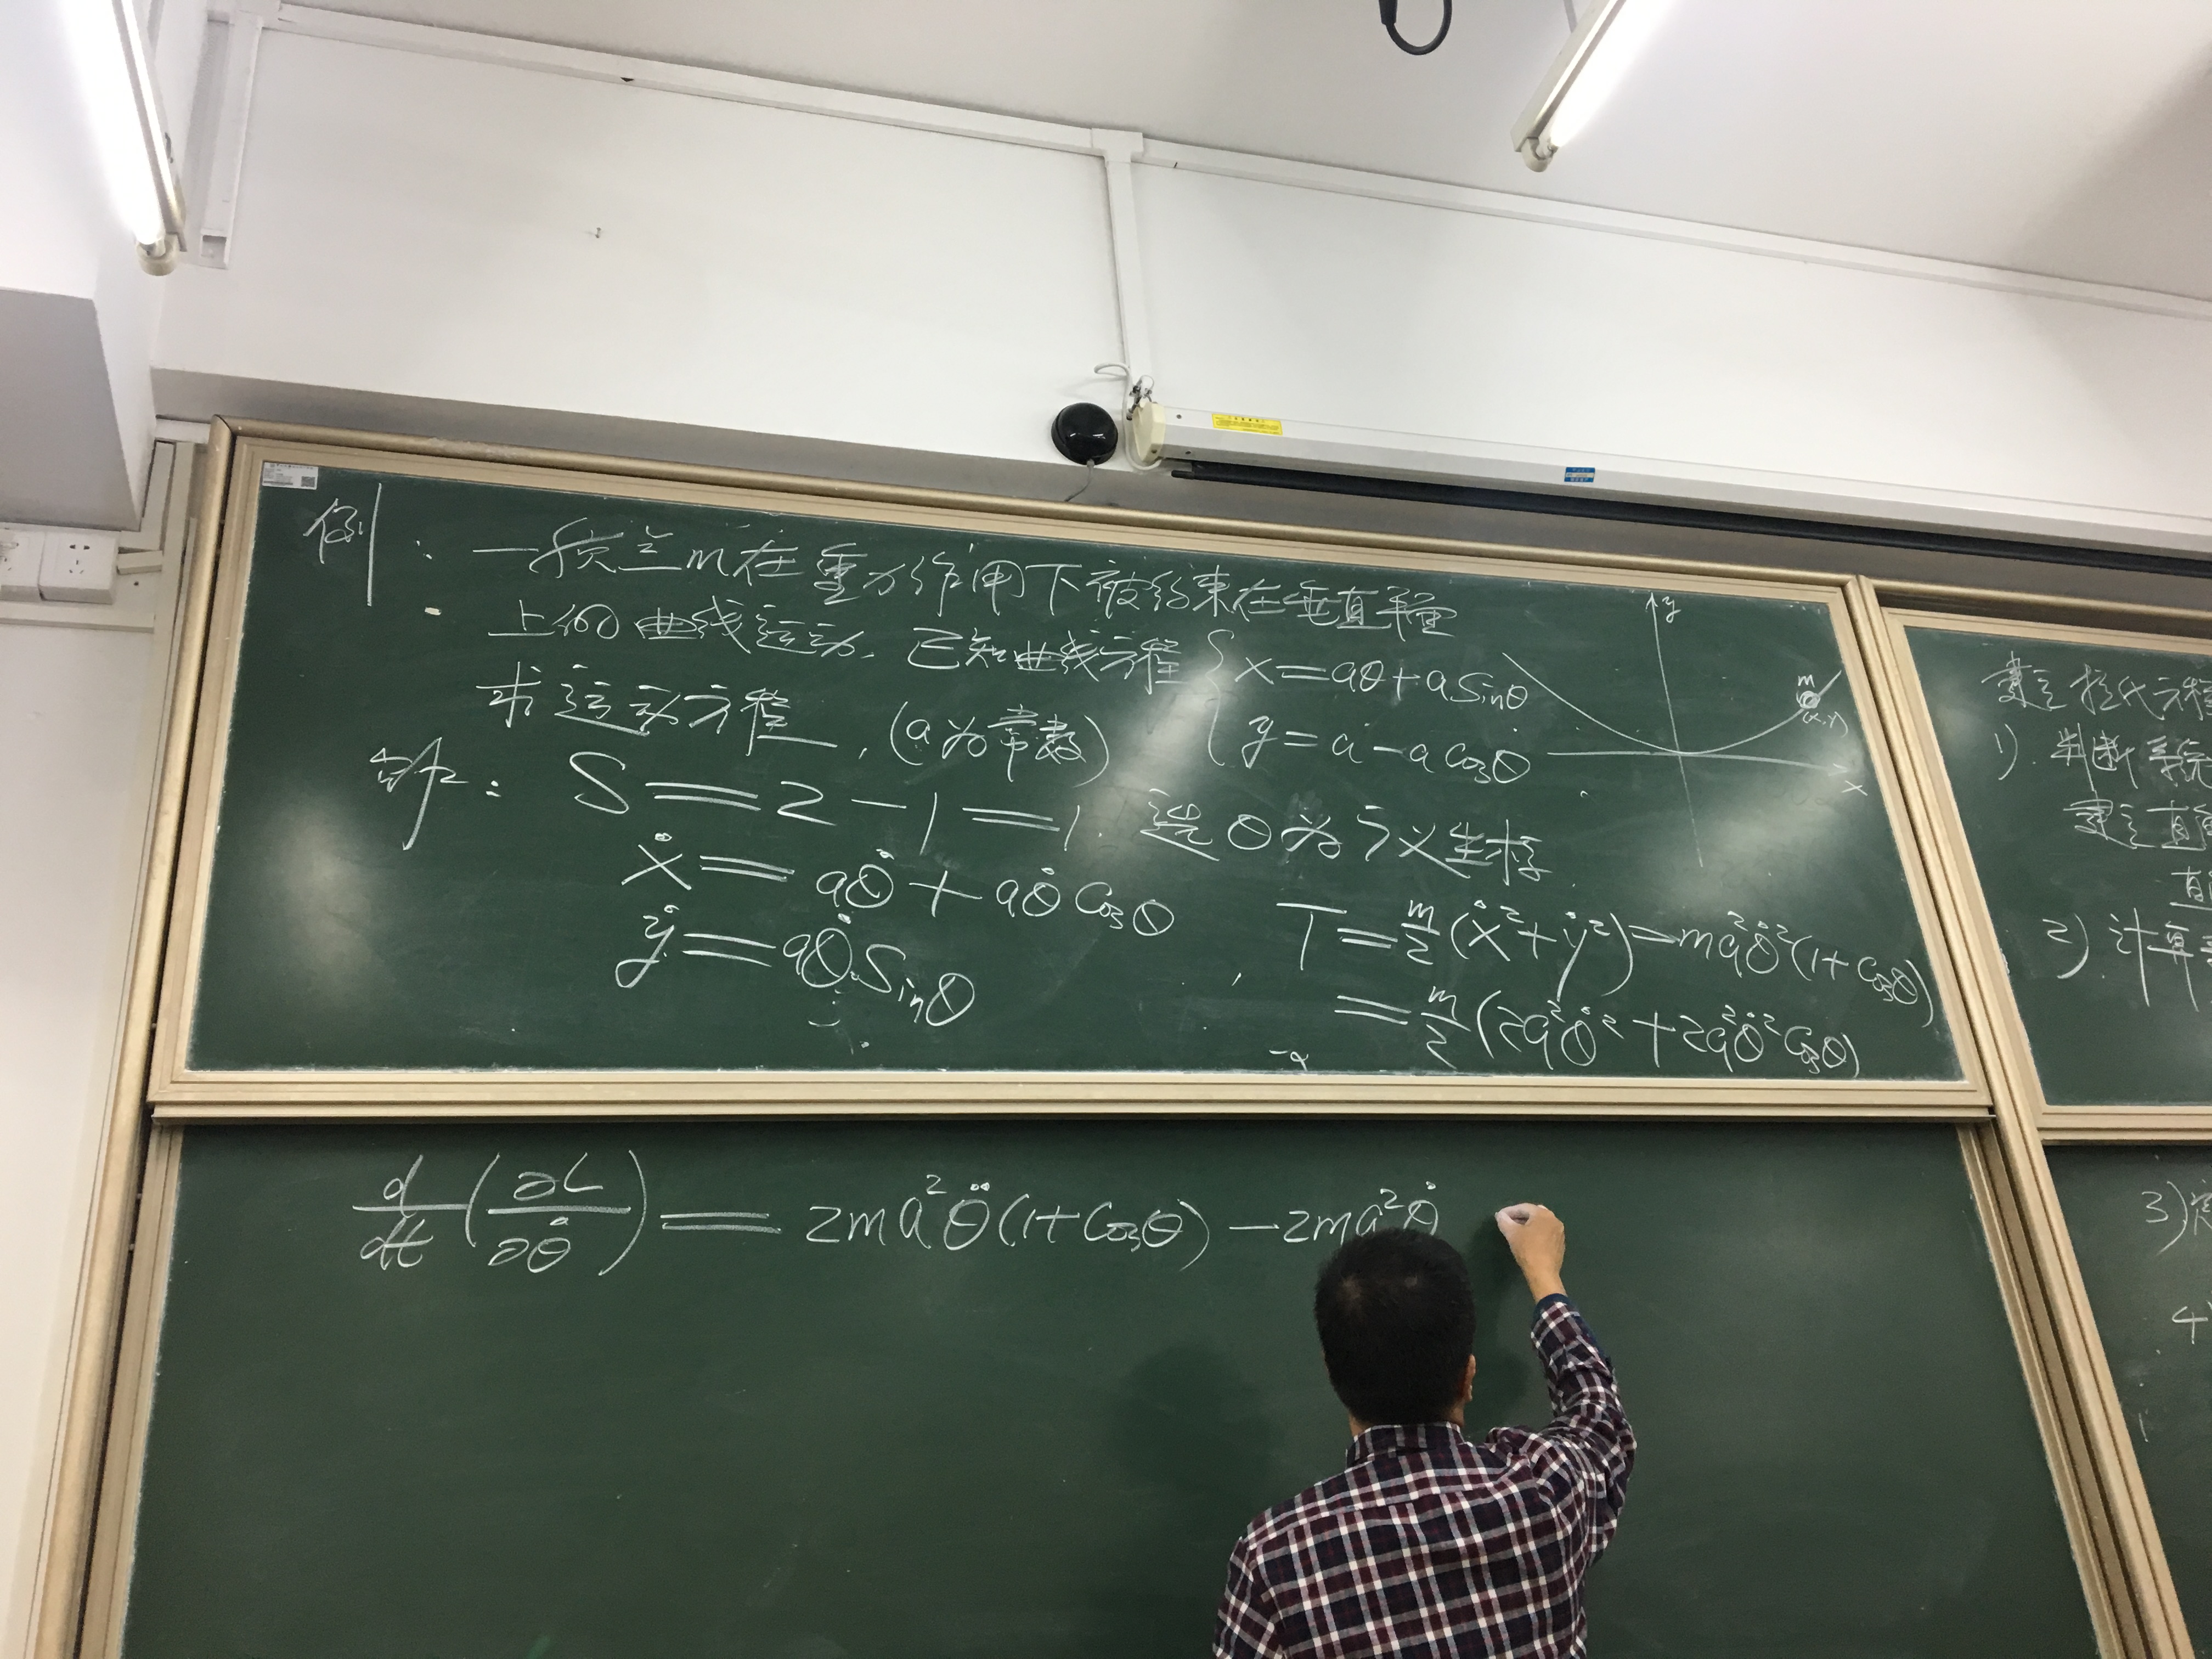 例: 一质点m在重力作用下被约束在垂直平面
上的曲线运动, 已知曲线方程 { x = aθ + a sinθ
y = a - a cosθ
求运动方程, (a为常数)
y
m
(x,y)
x
解: S = 2 - 1 = 1, 选θ为广义坐标
ẋ = aθ̇ + aθ̇ cosθ
ẏ = aθ̇ sinθ
T = m/2 (ẋ² + ẏ²) = ma²θ̇²(1 + cosθ)
= m/2 (2a²θ̇² + 2a²θ̇² cosθ)
d/dt (∂L/∂θ̇) = 2ma²θ̈(1 + cosθ) - 2ma²θ̇
建立拉氏方程
1). 判断系统
建立直
直
2). 计算
3)
4